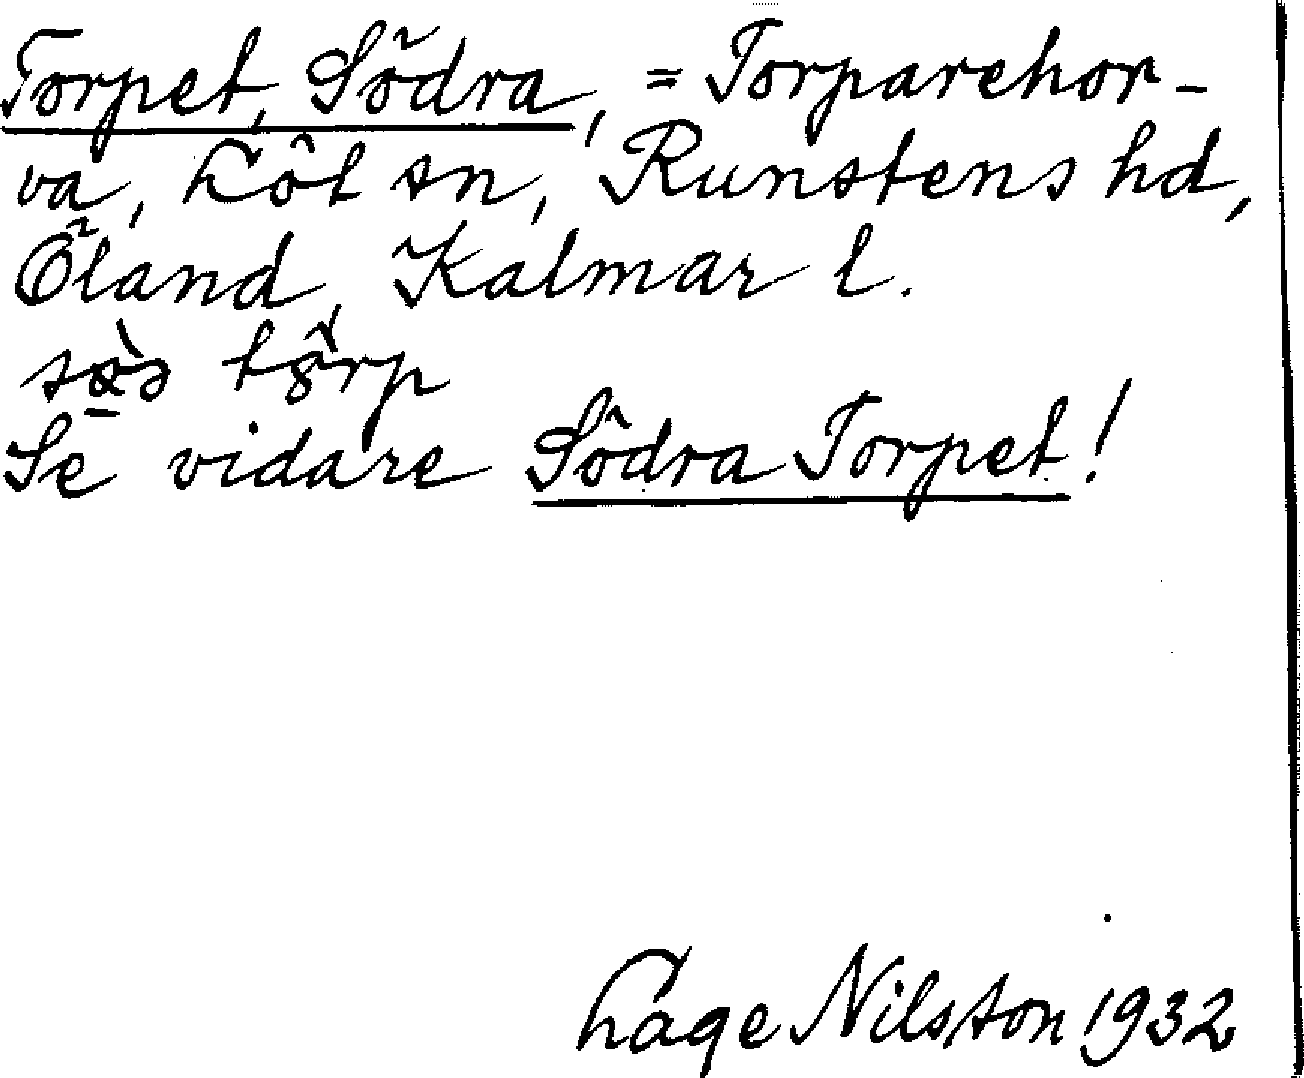 Torpet, Södra, = Torparehor-
va, Löt sn, Runstens hd,
Öland, Kalmar l.
Se vidare Södra Torpet!
Lage Nilsson 1932